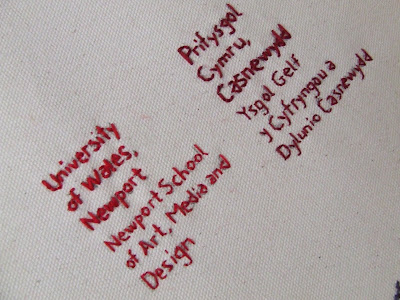 Prifysgol
Cymru,
Casnewydd
Ysgol Gelf
y Cyfryngau a
Dylunio Casnewydd
University
of Wales,
Newport
Newport School
of Art, Media and
Design